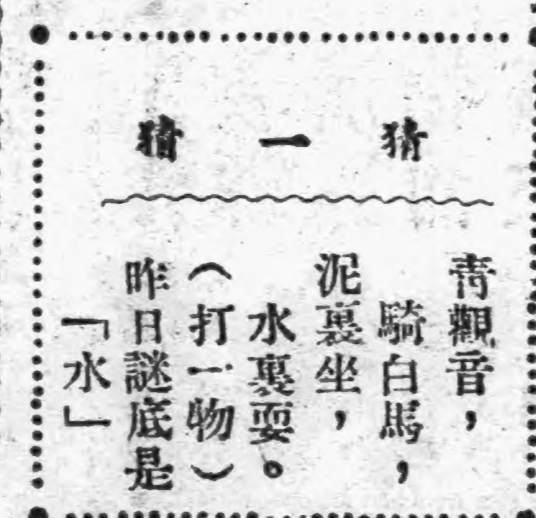 猜一猜
青觀音，
騎白馬，
泥裏坐，
水裏耍。
（打一物）
昨日謎底是
「水」